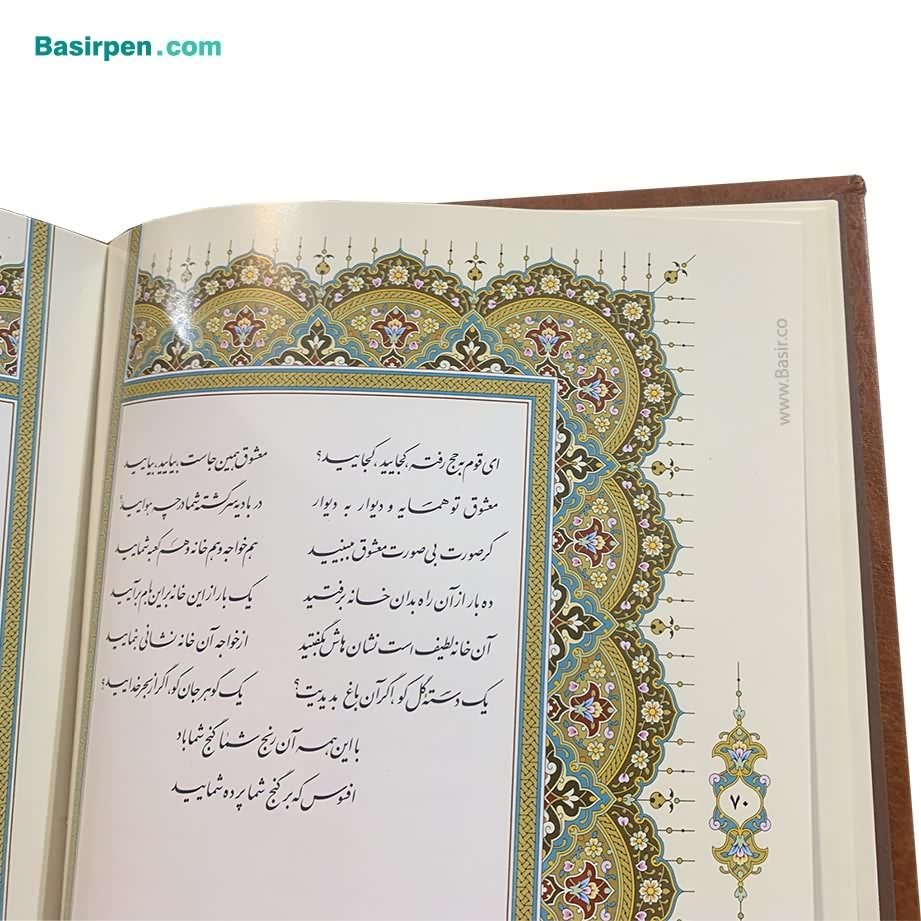 Basirpen.com
www.Basir.co
ای قوم به حج رفته، کجایید، کجایید؟ معشوق همین جاست، بیایید، بیایید
معشوق تو همسایه و دیوار به دیوار در بادیه سرگشته شما در چه هوایید؟
گر صورت بی صورت معشوق ببینید هم خواجه و هم خانه و هم کعبه شمایید
ده بار از آن راه بدان خانه برفتید یک بار از این خانه بر این بام برآیید
آن خانه لطیف است نشان هاش بگفتید از خواجه آن خانه نشانی بنمایید
یک دستهٔ گل کو، اگر آن باغ بدیدیت؟ یک گوهر جان کو، اگر از بحر خدایید؟
با این همه آن رنج شما گنج شما باد
افسوس که بر گنج شما پرده شمایید
۷۰